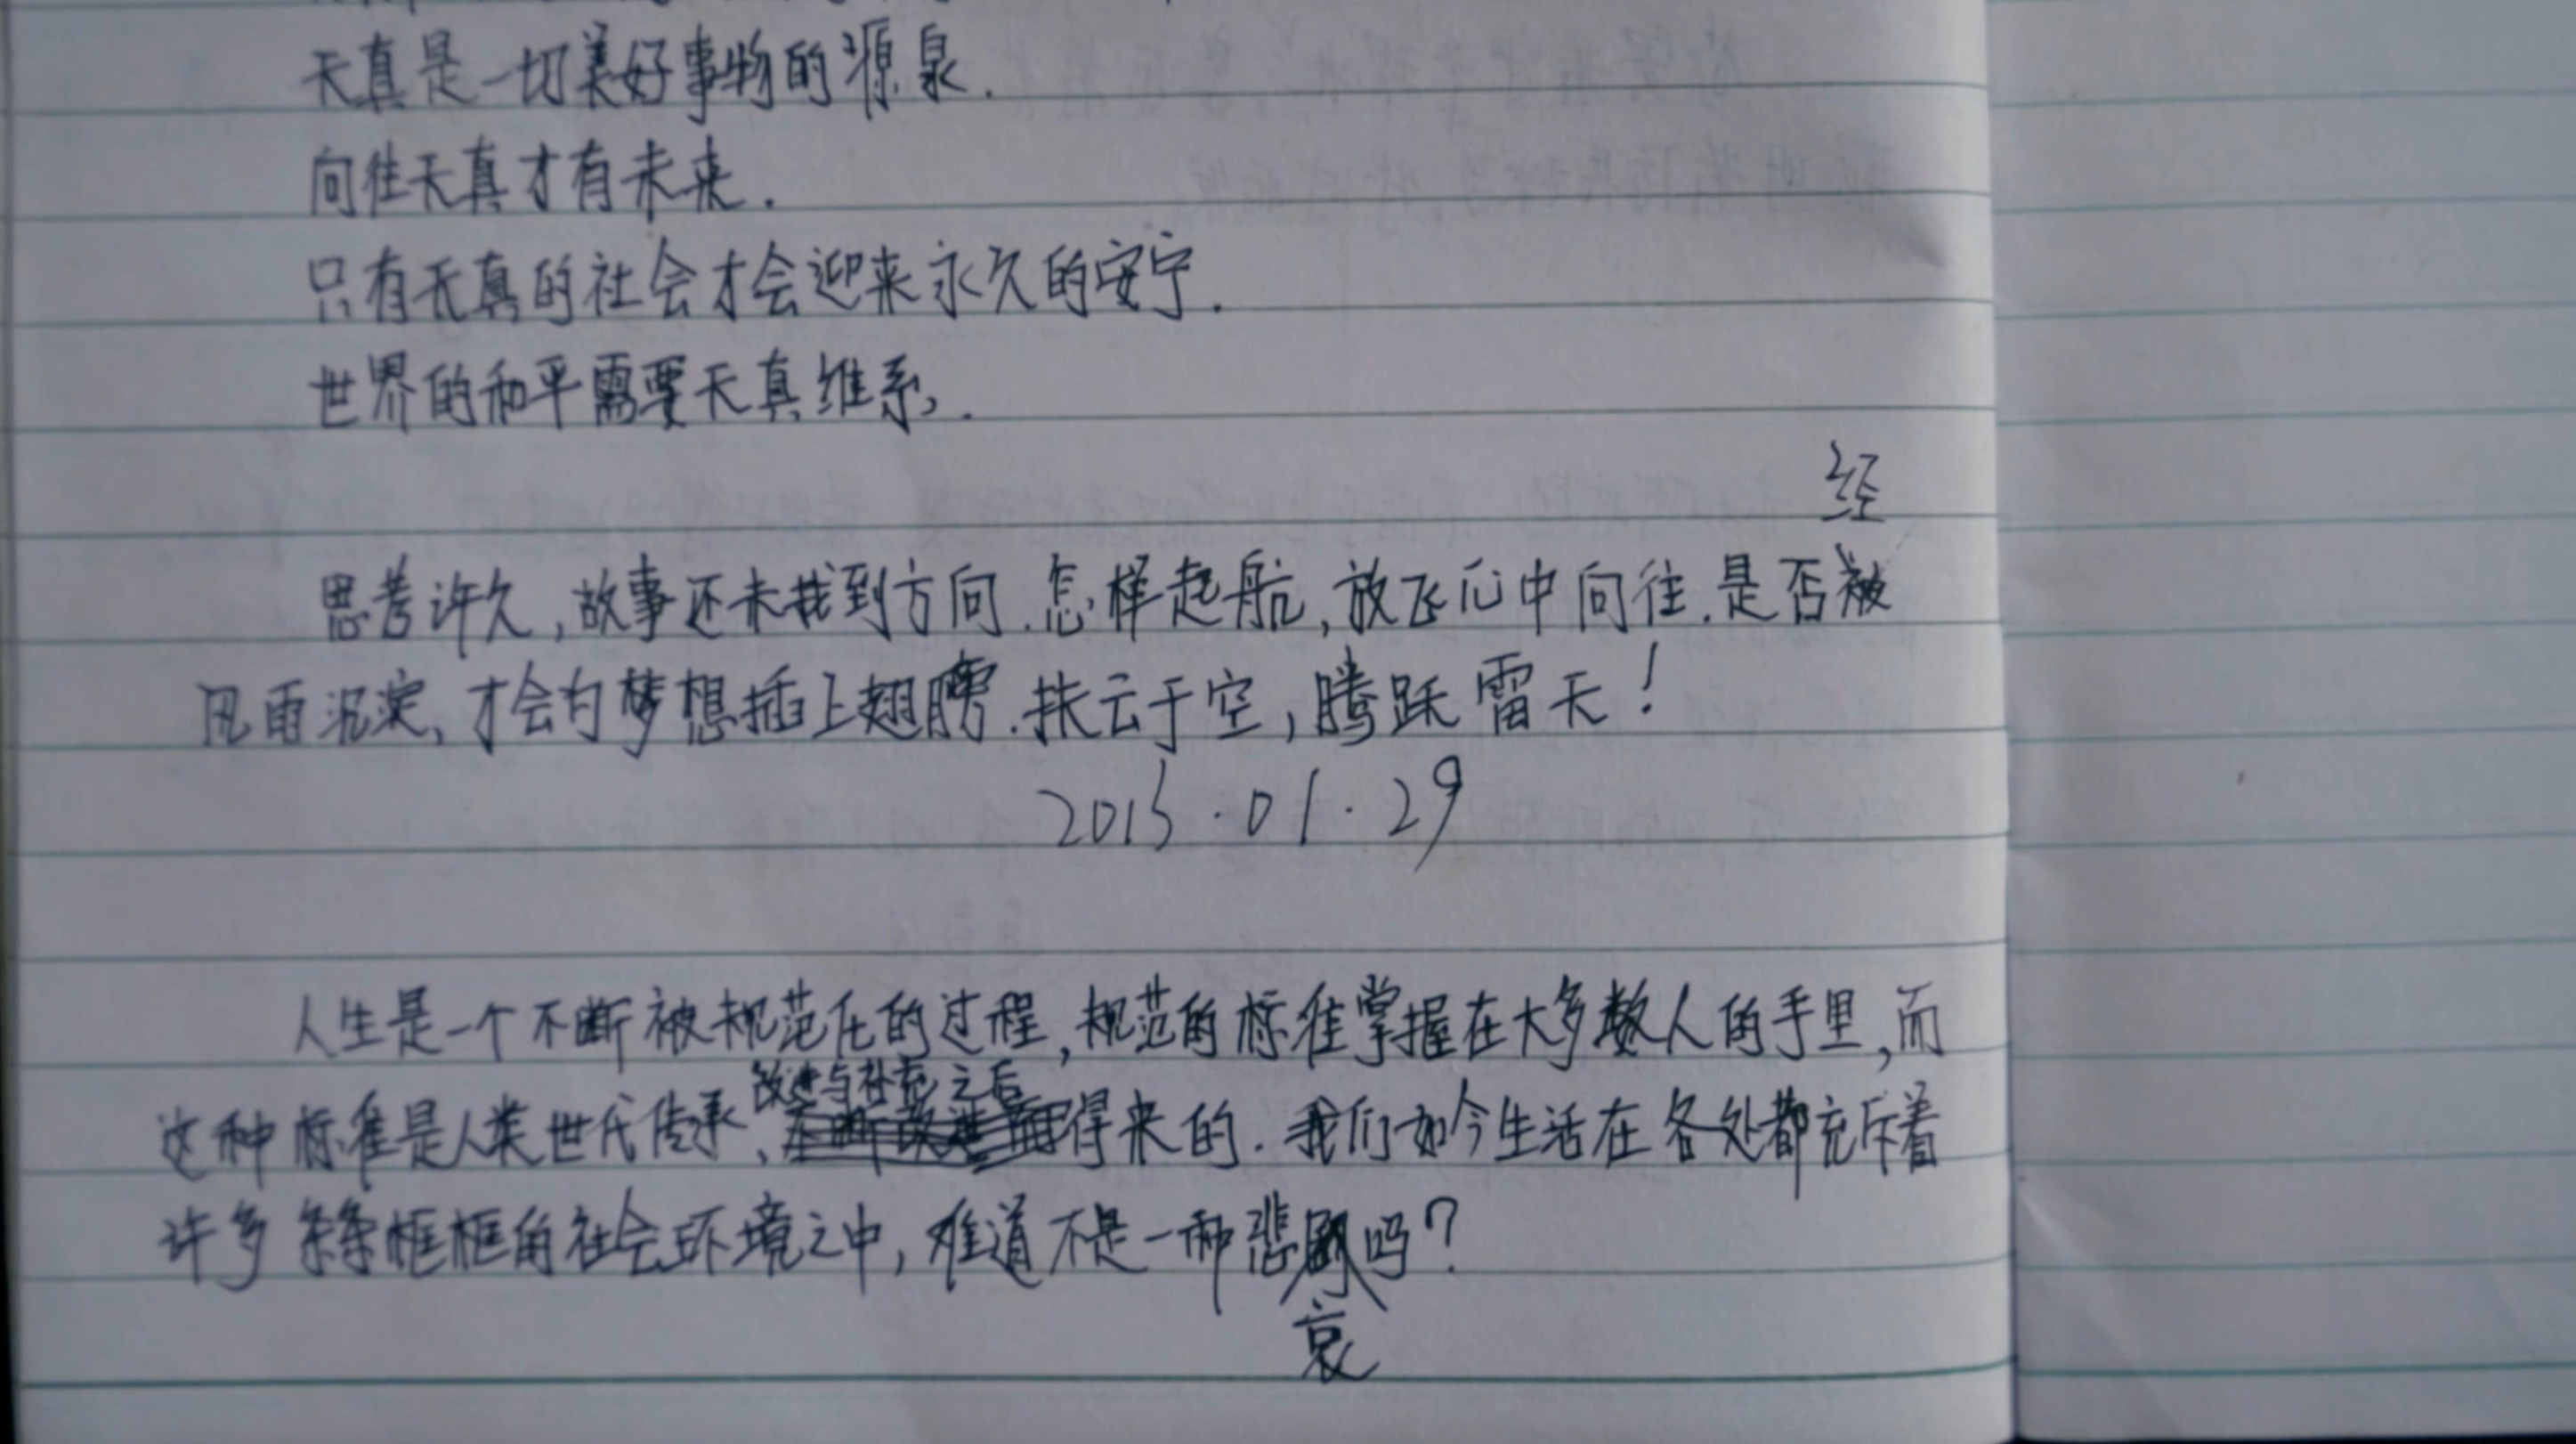 天真是一切美好事物的源泉.
向往天真才有未来.
只有天真的社会才会迎来永久的安宁.
世界的和平需要天真维系.
经
思考许久,故事还未找到方向.怎样起航,放飞心中向往.是否被
风雨沉淀,才会为梦想插上翅膀.扶云于空,腾跃雷天!
2015.01.29
人生是一个不断被规范化的过程,规范的标准掌握在大多数人的手里,而
改进与补充之后
这种标准是人类世代传承、得来的.我们如今生活在各处都充斥着
许多条条框框的社会环境之中,难道不是一种悲剧吗?
哀